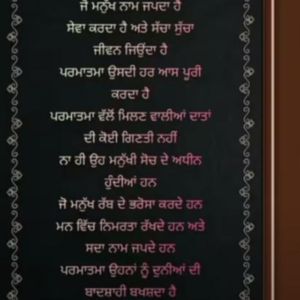 ਜੋ ਮਨੁੱਖ ਨਾਮ ਜਪਦਾ ਹੈ
ਸੇਵਾ ਕਰਦਾ ਹੈ ਅਤੇ ਸੱਚਾ ਸੁੱਚਾ
ਜੀਵਨ ਜਿਉਂਦਾ ਹੈ
ਪਰਮਾਤਮਾ ਉਸਦੀ ਹਰ ਆਸ ਪੂਰੀ
ਕਰਦਾ ਹੈ
ਪਰਮਾਤਮਾ ਵੱਲੋਂ ਮਿਲਣ ਵਾਲੀਆਂ ਦਾਤਾਂ
ਦੀ ਕੋਈ ਗਿਣਤੀ ਨਹੀਂ
ਨਾ ਹੀ ਉਹ ਮਨੁੱਖੀ ਸੋਚ ਦੇ ਅਧੀਨ
ਹੁੰਦੀਆਂ ਹਨ
ਜੋ ਮਨੁੱਖ ਰੱਬ ਦੇ ਭਰੋਸਾ ਕਰਦੇ ਹਨ
ਮਨ ਵਿੱਚ ਨਿਮਰਤਾ ਰੱਖਦੇ ਹਨ ਅਤੇ
ਸਦਾ ਨਾਮ ਜਪਦੇ ਹਨ
ਪਰਮਾਤਮਾ ਉਹਨਾਂ ਨੂੰ ਦੁਨੀਆਂ ਦੀ
ਬਾਦਸ਼ਾਹੀ ਬਖਸ਼ਦਾ ਹੈ